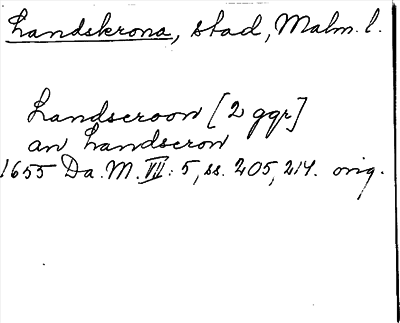 Landskrona, stad, Malm. l.
Landscroon [2 ggr]
an Landscron
1655 Da. M. VII: 5, ss. 205, 214. orig.